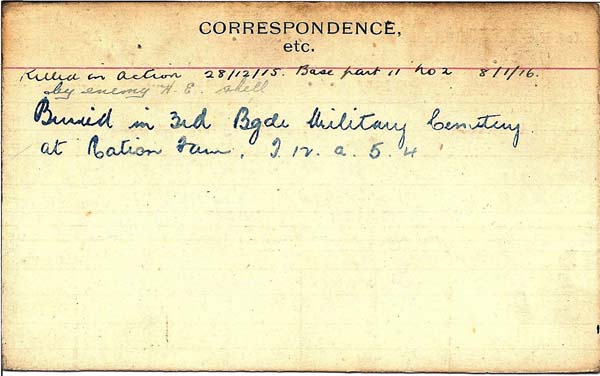 CORRESPONDENCE,
etc.
Killed in action 28/12/15. Base part 11 No 2 8/1/16.
by enemy H. E. shell
Buried in 3rd Bgde Military Cemetery
at Ration Farm, I. 12. a. 5. 4